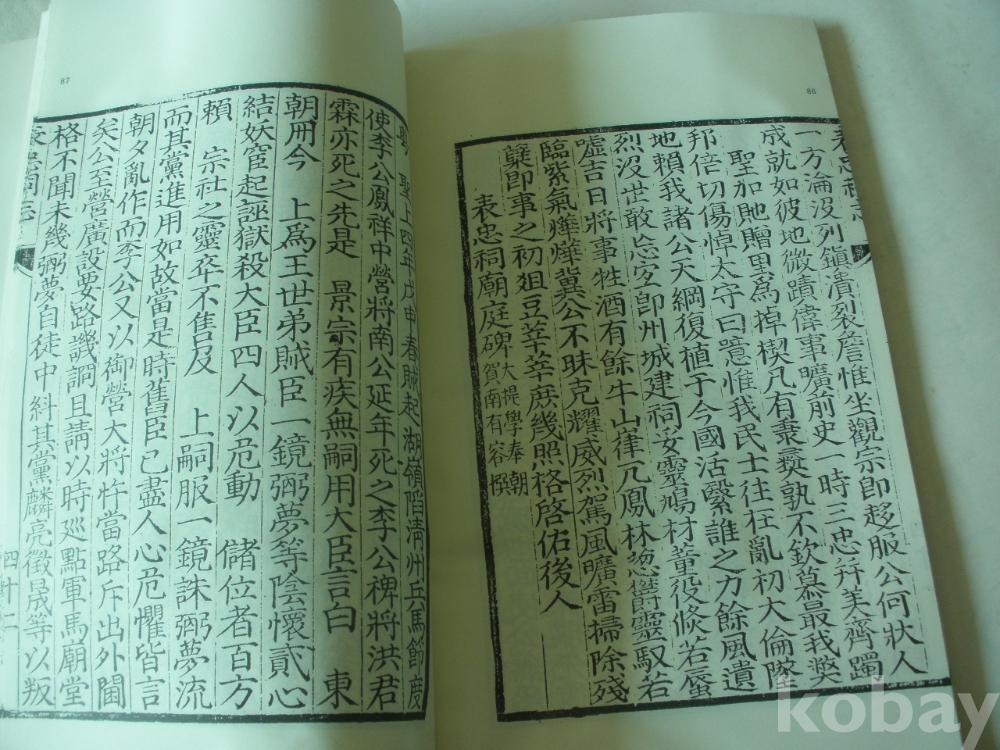 86
一方淪沒列鎭潰裂詹惟坐觀宗卽趍服公何狀人
成就如彼地微蹟偉事曠前史一時三忠幷美齊躅
聖加貤贈里爲棹楔凡有秉彛孰不欽慕最我獘
邦倍切傷悼太守曰噫惟我民士往在亂初大倫墜
地賴我諸公天綱復植于今國活繄誰之力餘風遺
烈沒世敢忘卽州城建祠妥靈鳩材董役倐若蜃
噓吉日將事牲酒有餘牛山嵂兀鳳林葱欝靈馭若
臨紫氣燁燁冀公不昧克耀威烈駕風曠雷掃除殘
孽卽事之初俎豆莘莘庶幾照格啓佑後人
表忠祠廟庭碑 大提學奉朝賀南有容撰
87
聖上四年戊申春賊起湖領陷淸州兵馬節度
使李公鳳祥中營將南公延年死之李公稗將洪君
霖亦死之先是 景宗有疾無嗣用大臣言白 東
朝冊今 上爲王世弟賊臣一鏡弼夢等陰懷貳心
結妖宦起誣獄殺大臣四人以危動 儲位者百方
賴 宗社之靈卒不售及 上嗣服一鏡誅弼夢流
而其黨進用如故當是時舊臣已盡人心危懼皆言
朝夕亂作而李公又以御營大將忤當路斥出外閫
矣公至營廣設要路譏詗且請以時廵點軍馬廟堂
格不聞未幾弼夢自徒中糾其黨麟亮徵晟等以叛
四十二
kobay